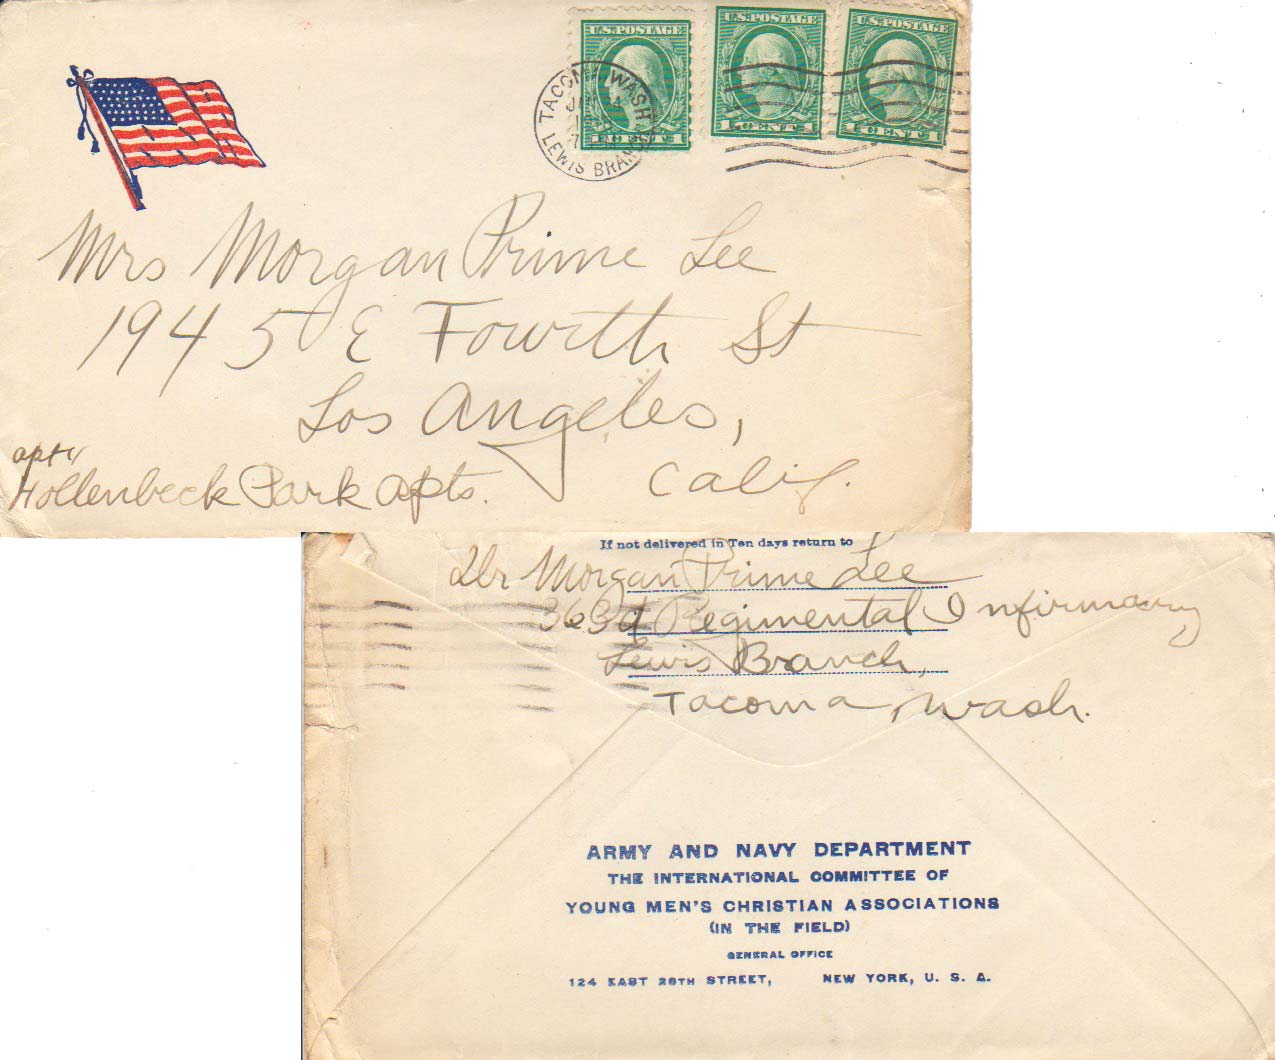 U.S. POSTAGE U.S. POSTAGE U.S. POSTAGE
TACOMA, WASH.
LEWIS BRANCH
1 CENT 1 1 CENT 1 1 CENT 1
Mrs Morgan Prime Lee
1945 E Fourth St
Los Angeles,
Calif.
apt
Hollenbeck Park apts.
If not delivered in Ten days return to
Morgan Prime Lee
363d Regimental Infirmary
Lewis Branch,
Tacoma, Wash.
ARMY AND NAVY DEPARTMENT
THE INTERNATIONAL COMMITTEE OF
YOUNG MEN'S CHRISTIAN ASSOCIATIONS
(IN THE FIELD)
GENERAL OFFICE
124 EAST 28TH STREET, NEW YORK, U. S. A.